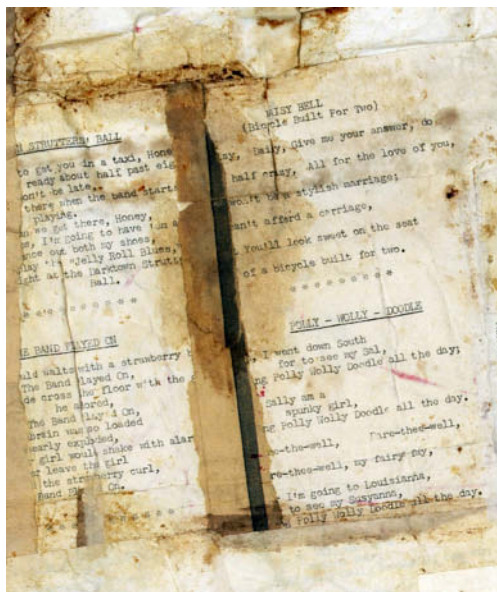 STRUTTERS' BALL
to get you in a taxi, Honey
ready about half past
be late,
there when the band starts
playing.
we get there, Honey,
I'm going to have
out both my shoes,
the "Jelly Roll Blues,
at the Darktown
Ball.
* * * * * * * *
BAND PLAYED ON
waltz with a strawberry
The Band Played On,
cross the floor with the
he adored,
The Band Played On,
brain was so loaded
nearly exploded,
girl would shake with
leave the girl
the strawberry curl,
Band On.
* * * * *
BELL
(Bicycle Built For Two)
Daily, Give me your answer, do,
half crazy, All for the love of you,
won't be a stylish marriage;
can't afford a carriage,
You'll look sweet on the seat
of a bicycle built for two.
* * * * * * * * *
POLLY - WOLLY - DOODLE
I went down South
for to see my Sal,
Polly Wolly Doodle all the day;
Sally am a
spunky girl,
Polly Wolly Doodle all the day.
Fare-thee-well,
my fairy fay,
I'm going to Louisianna,
to see my Susyanna,
Polly Wolly Doodle all the day.